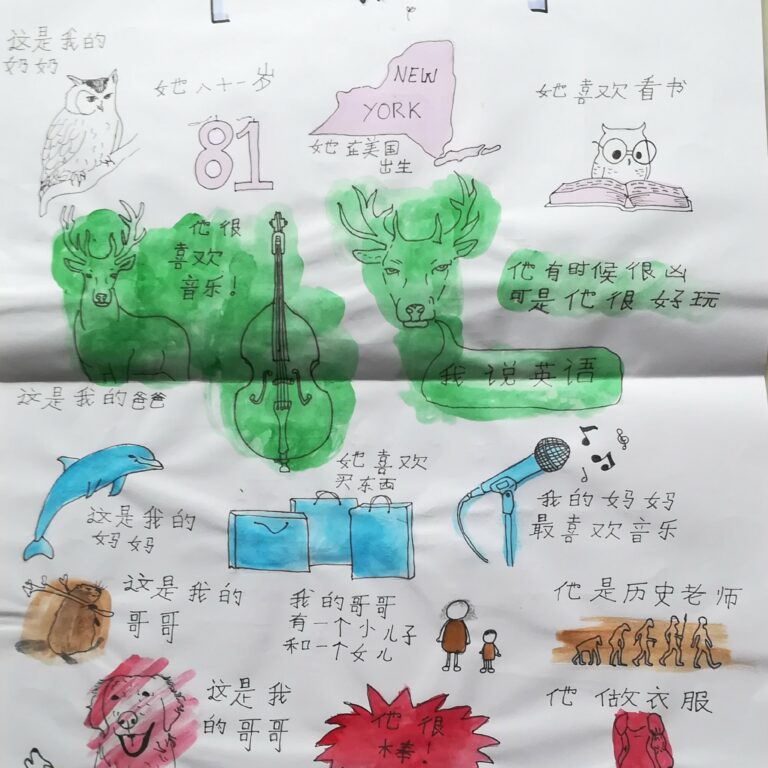 这是我的
奶奶
她八十一岁
81
NEW
YORK
她在美国
出生
她喜欢看书
他很
喜欢
音乐！
这是我的爸爸
他有时候很凶
可是他很好玩
我说英语
这是我的
妈妈
她喜欢
买东西
我的妈妈
最喜欢音乐
这是我的
哥哥
我的哥哥
有一个小儿子
和一个女儿
他是历史老师
这是我
的哥哥
他很
棒！
他做衣服